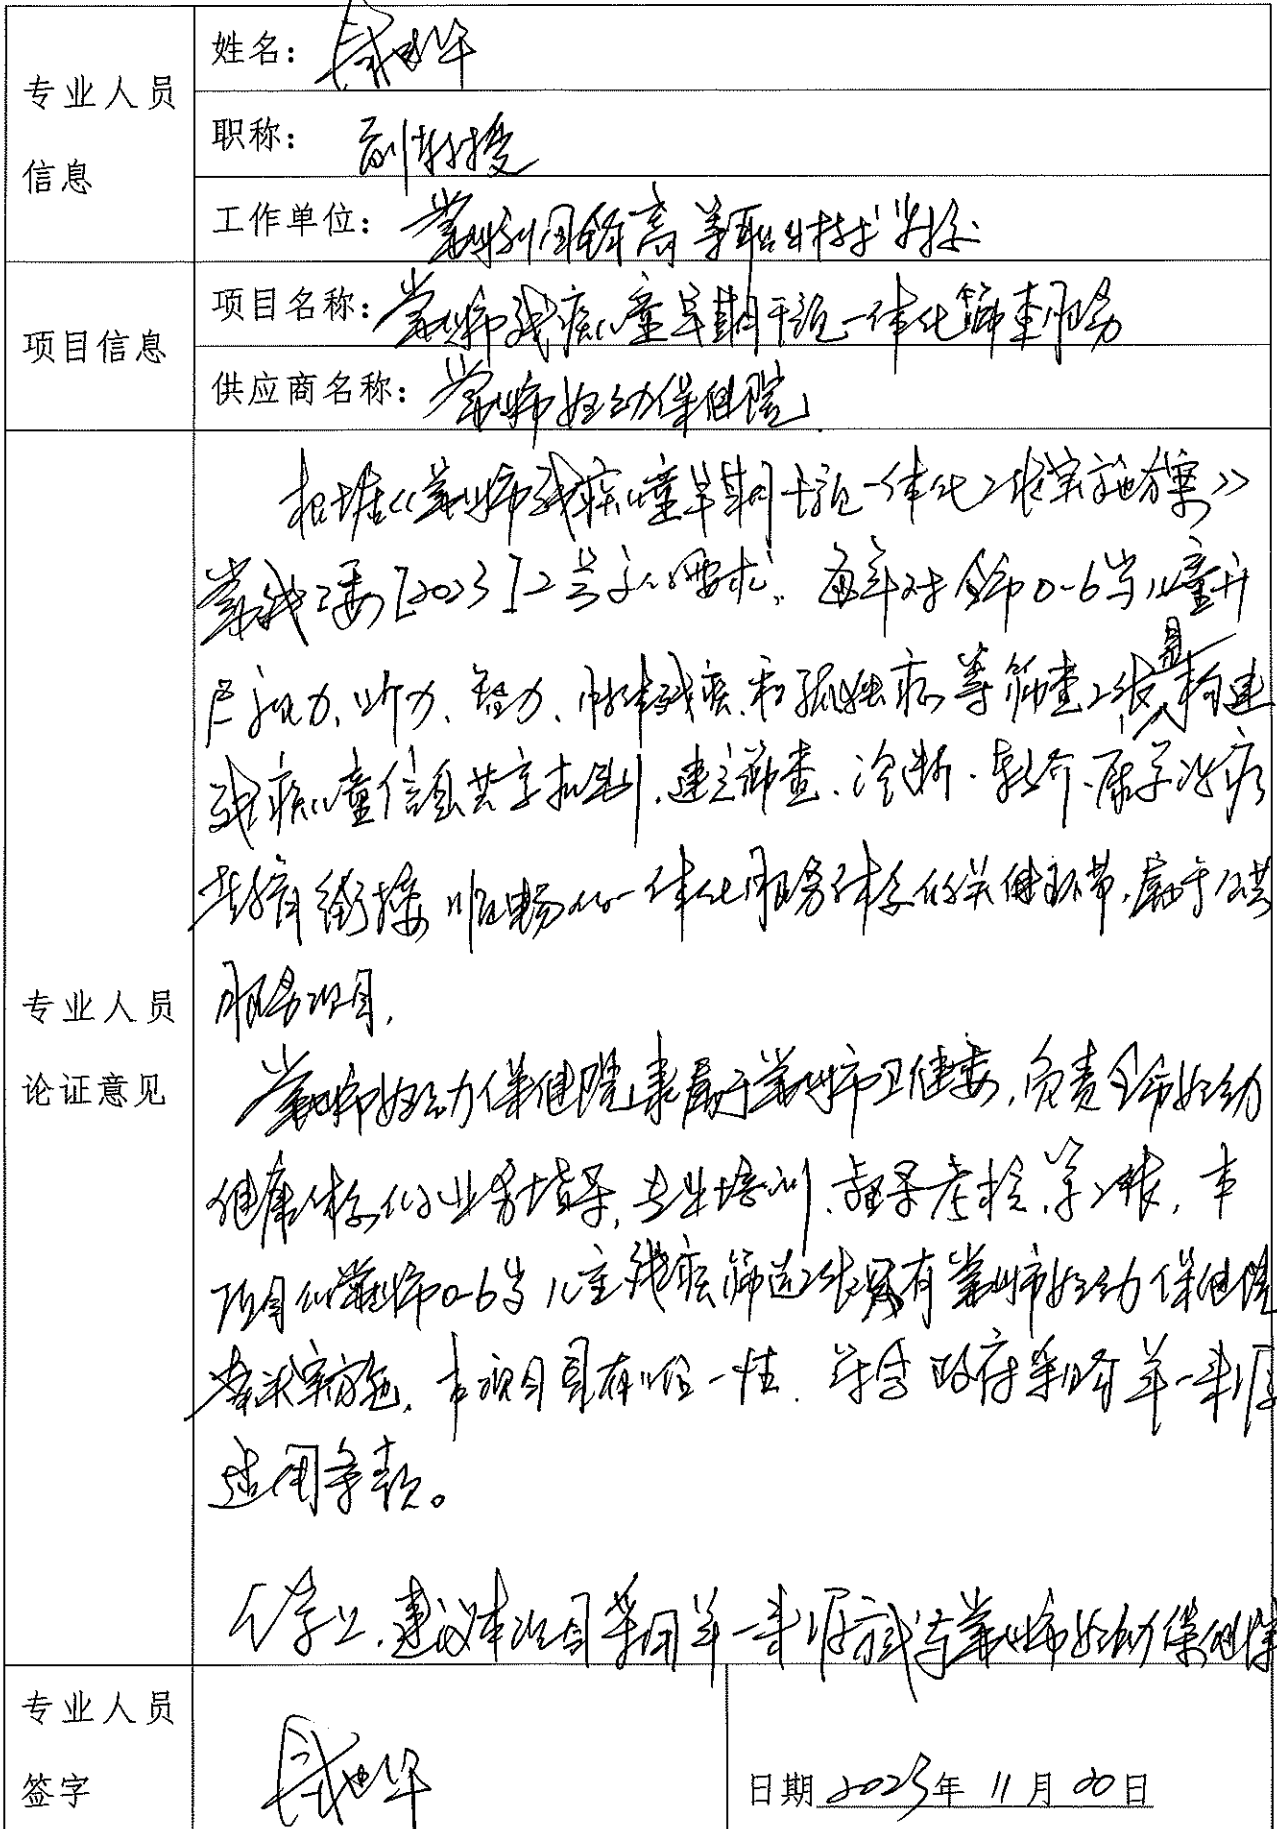 专业人员
信息
姓名：
职称：副教授
工作单位：常州刘国钧高等职业技术学校
项目信息
项目名称：常州市残疾儿童早期干预一体化筛查服务
供应商名称：常州市妇幼保健院
专业人员
论证意见
根据《常州市残疾儿童早期干预一体化工作实施方案》
常残工委[2023]2号文的要求，每年对全市0-6岁儿童开
展视力、听力、智力、肢体残疾和孤独症等筛查工作，是构建
残疾儿童信息共享机制，建立筛查、诊断、转介、康复治疗
教育衔接顺畅的一体化服务体系的关键环节，属于公共
服务项目，
常州市妇幼保健院隶属于常州市卫健委，负责全市妇幼
健康体系的业务指导，专业培训，督导考核，等工作，本
项目的常州市0-6岁儿童残疾筛查工作只有常州市妇幼保健院
实施，本项目具有唯一性，符合政府采购单一来源
适用条款。
综上，建议本项目采用单一来源方式与常州市妇幼保健院
专业人员
签字
日期 2023年 11月 日